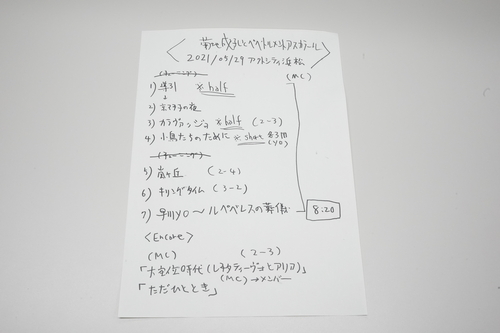 菊地成孔とペペ・トルメント・アスカラール
2021/05/29 アクトシティ浜松
(チューニング)
(MC)
1) 早引 ※half
↓
2) 京マチ子の夜
3) カラヴァッジョ ※half (2-3)
4) 小鳥たちのために ※short 各3回 (YO)
(チューニング)
5) 嵐が丘 (2-4)
6) キリングタイム (3-2)
7) 早川YO〜ルペ・ベレスの葬儀
8:20
<Encore>
(MC) (2-3)
「大空位時代(レチタティーヴォとアリア)」
(MC)→メンバー
「ただひととき」